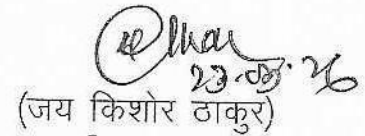 23.05.26
(जय किशोर ठाकुर)